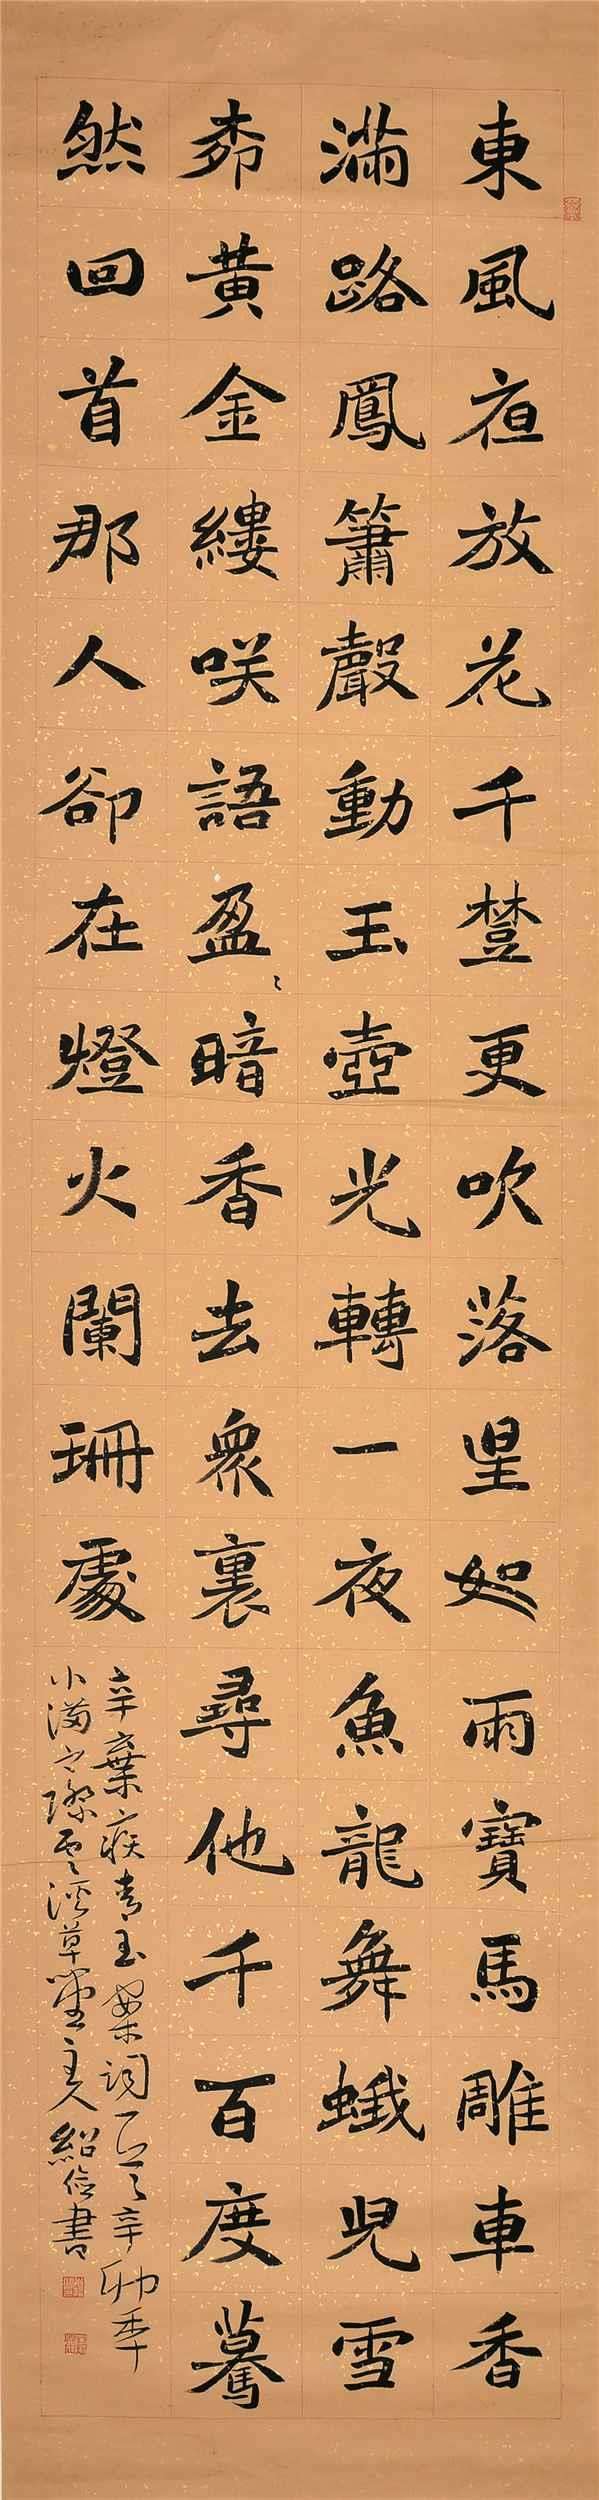 東風夜放花千埜更吹落星如雨寶馬雕車香
滿路鳳簫聲動玉壺光轉一夜魚龍舞蛾兒雪
柳黃金縷咲語盈〻暗香去衆裏尋他千百度驀
然回首那人卻在燈火闌珊處
辛棄疾青玉案詞一首辛卯年
小滿之際雲溪草堂主人紹儉書